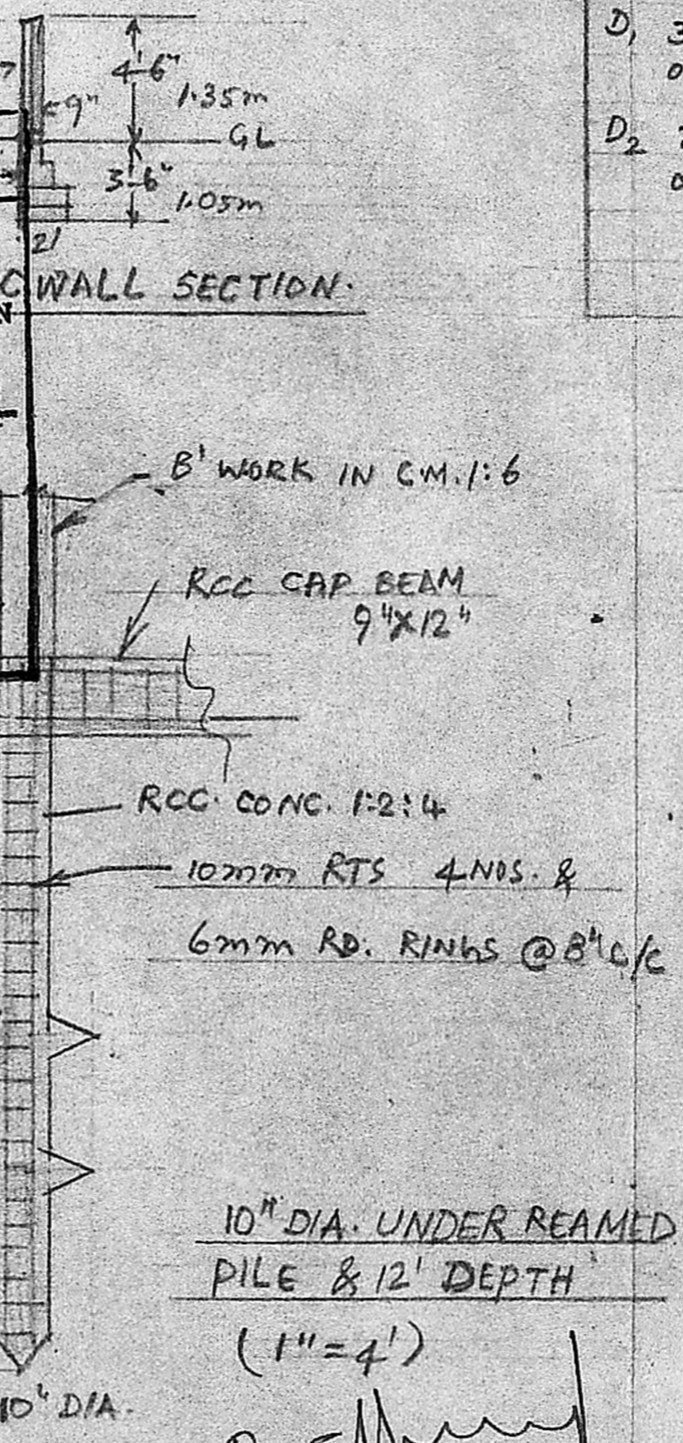 4'-6"
1.35m
9"
GL
3'-6"
1.05m
2'
WALL SECTION.
B' WORK IN C.M. 1:6
RCC CAP BEAM
9"X12"
RCC. CONC. 1:2:4
10mm RTS 4 NOS. &
6mm RD. RINGS @ 8" C/C
10" DIA. UNDER REAMED
PILE & 12' DEPTH
(1"=4')
10" DIA.
D1 3
D2